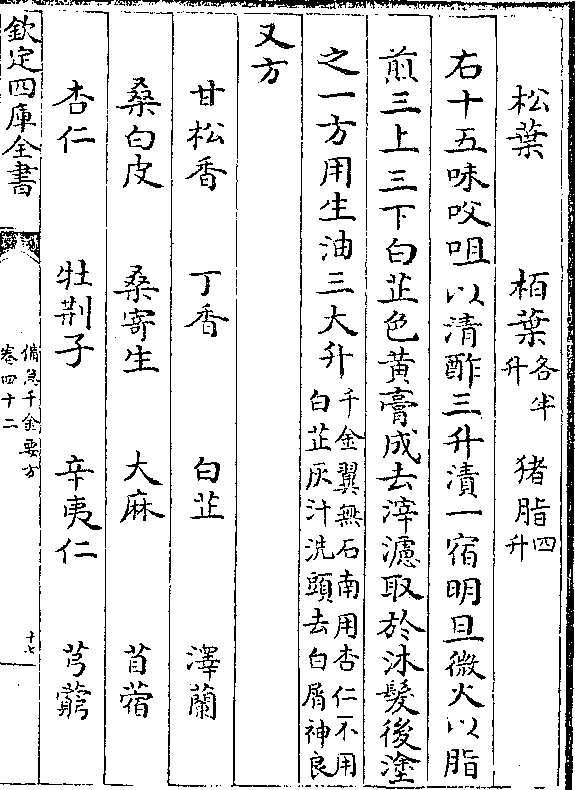 松葉 栢葉各半升 猪脂四升
右十五味㕮咀以清酢三升漬一宿明旦微火以脂
煎三上三下白芷色黄膏成去滓濾取於沐髮後塗
之一方用生油三大升千金翼無石南用杏仁不用白芷灰汁洗頭去白屑神良
又方
甘松香 丁香 白芷 澤蘭
桑白皮 桑寄生 大麻 苜蓿
杏仁 牡荆子 辛夷仁 芎藭
欽定四庫全書
備急千金要方
卷四十二
十七